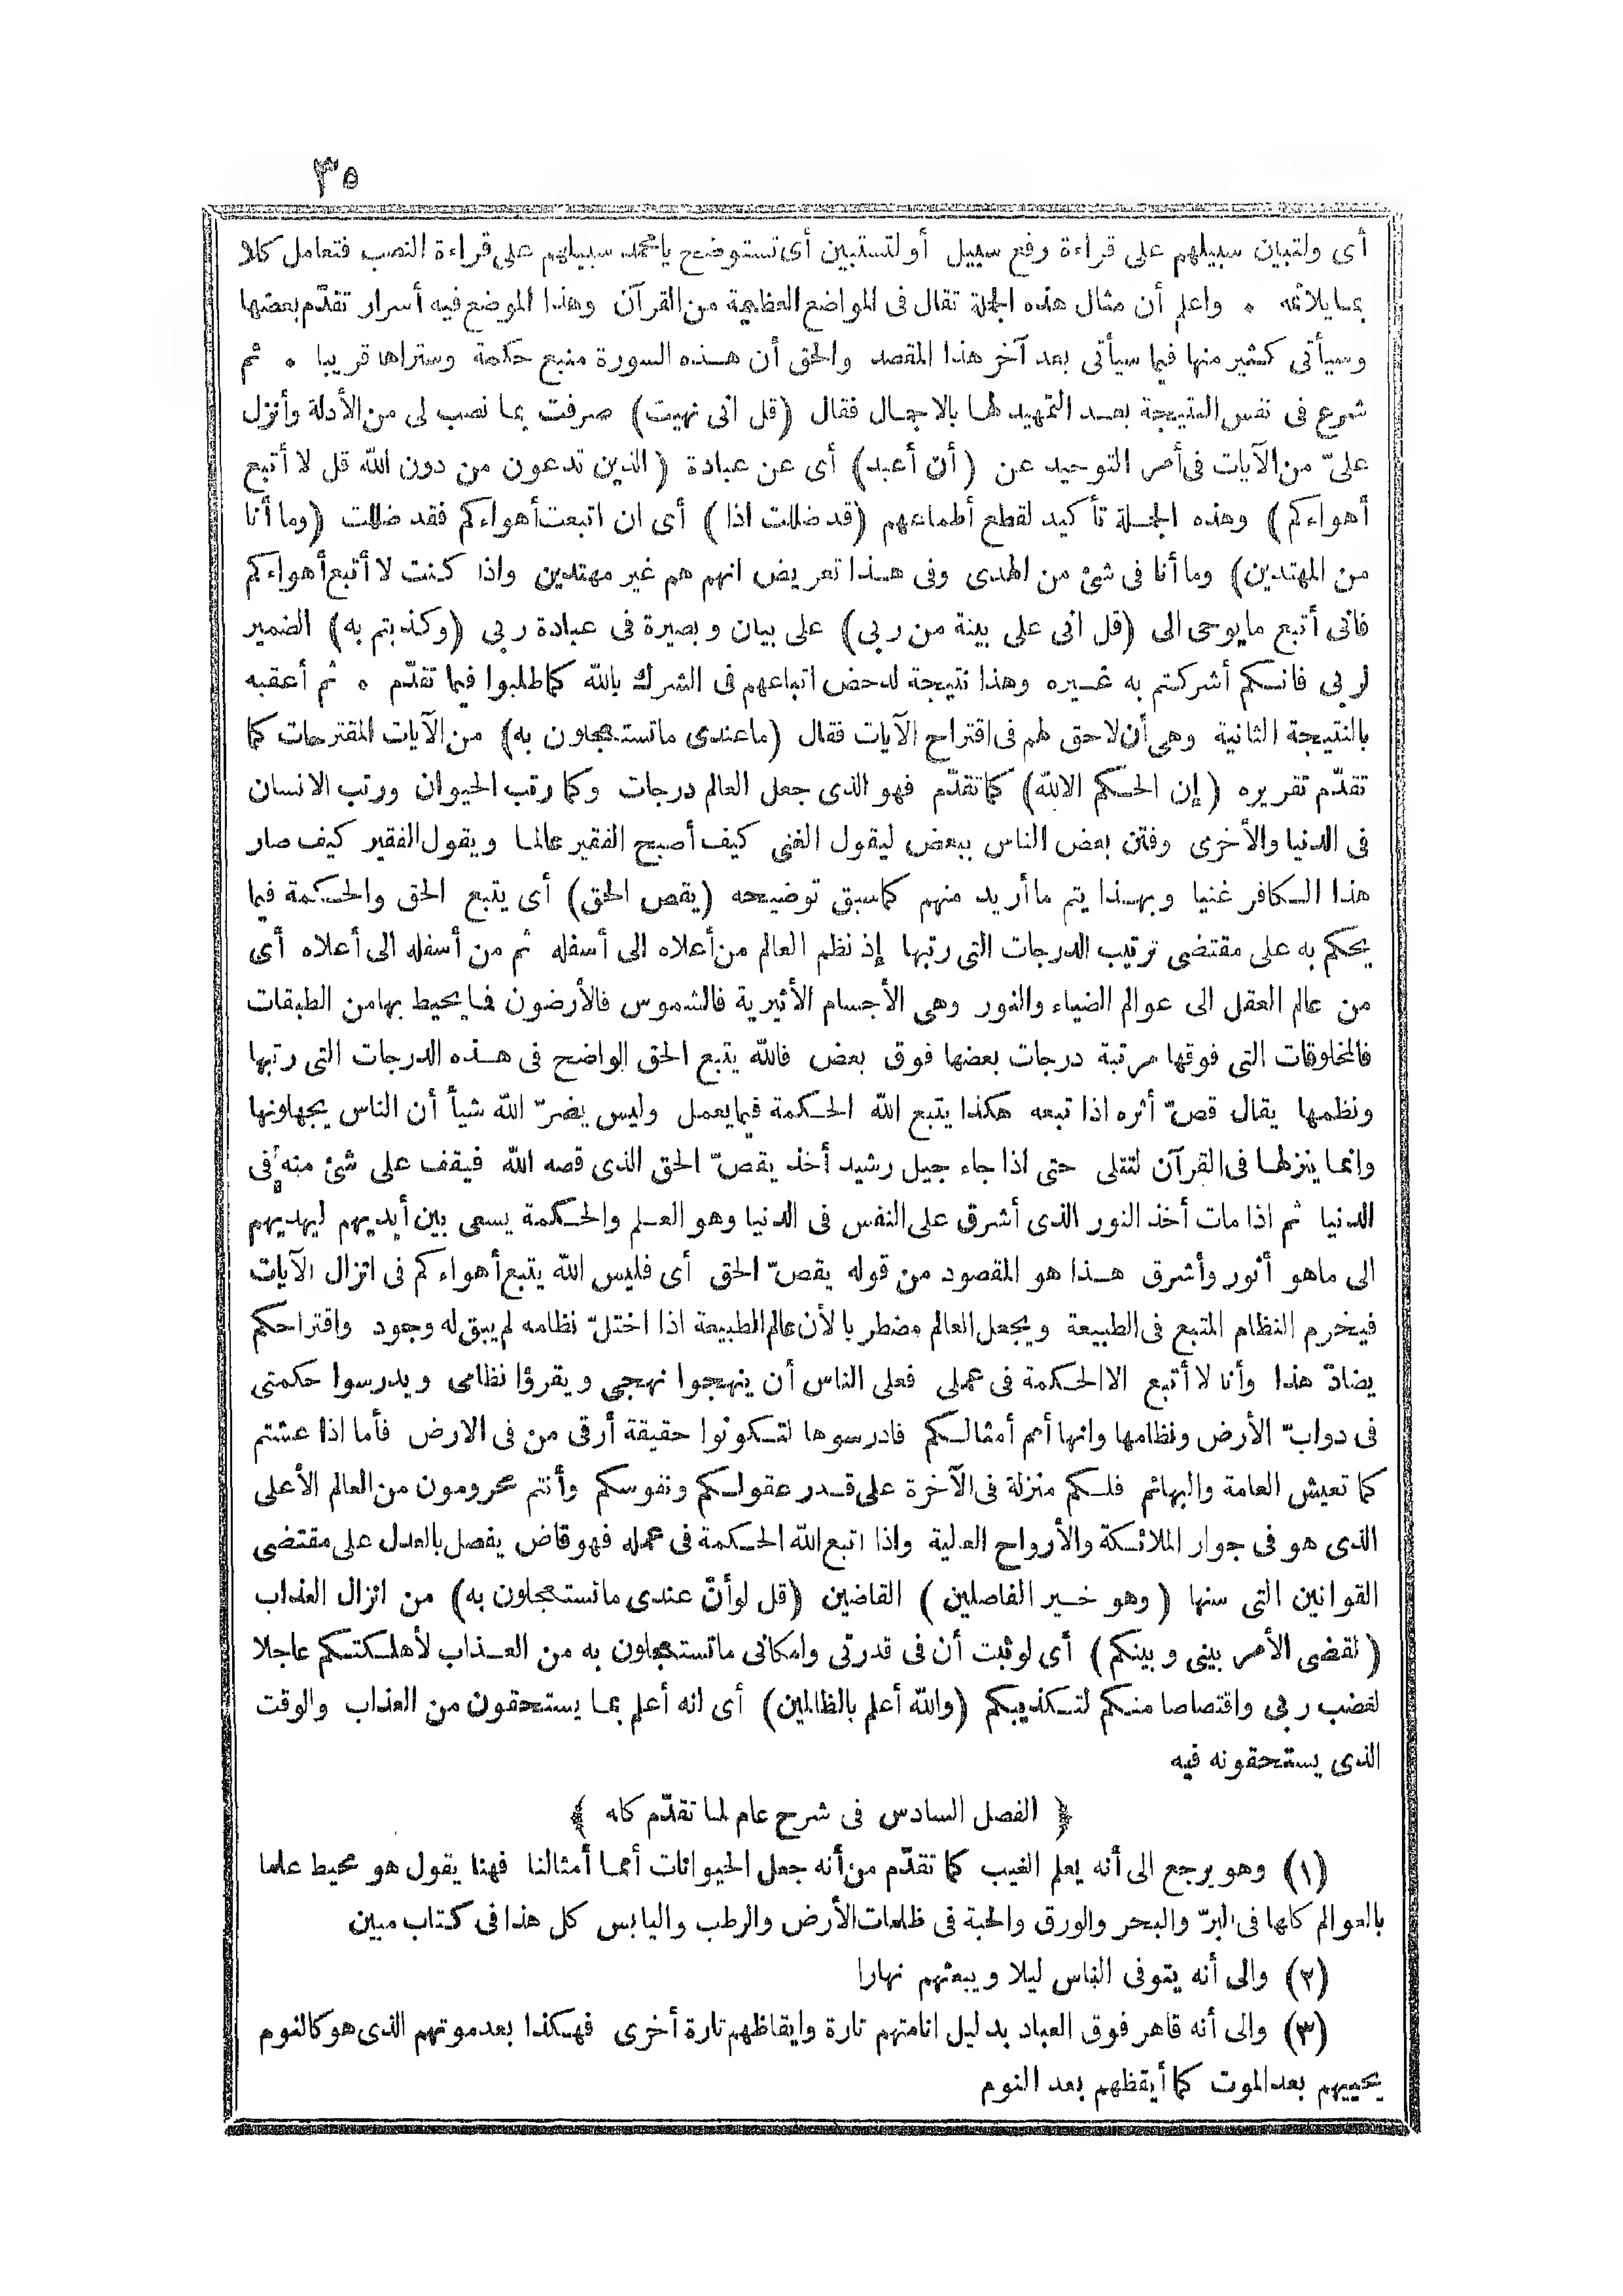 ٣٥
أى ولتبيان سبيلهم على قراءة رفع سبيل أو لتستبين أى تستوضح يا محمد سبيلهم على قراءة النصب فتعامل كلا
بما يلائمه ٠ واعلم أن مثال هذه الجملة تقال فى المواضع العظيمة من القرآن وهذا الموضع فيه أسرار تقدّم بعضها
وسيأتى كثير منها فيما سيأتى بعد آخر هذا المقصد والحق أن هذه السورة منبع حكمة وستراها قريبا ٠ ثم
شرع فى نفس النتيجة بعد التمهيد لها بالاجمال فقال (قل انى نهيت) صرفت بما نصب لى من الأدلة وأنزل
علىّ من الآيات فى أمر التوحيد عن (أن أعبد) أى عن عبادة (الذين تدعون من دون الله قل لا أتبع
أهواءكم) وهذه الجملة تأكيد لقطع أطماعهم (قد ضللت اذا) أى ان اتبعت أهواءكم فقد ضللت (وما أنا
من المهتدين) وما أنا فى شئ من الهدى وفى هذا تعريض انهم هم غير مهتدين واذا كنت لا أتبع أهواءكم
فانى أتبع ما يوحى الى (قل انى على بينة من ربى) على بيان وبصيرة فى عبادة ربى (وكذبتم به) الضمير
لربى فانكم أشركتم به غيره وهذا نتيجة لدحض اتباعهم فى الشرك بالله كما طلبوا فيما تقدّم ٠ ثم أعقبه
بالنتيجة الثانية وهى أن لا حق لهم فى اقتراح الآيات فقال (ما عندى ما تستعجلون به) من الآيات المقترحات كما
تقدّم تقريره (إن الحكم الا لله) كما تقدّم فهو الذى جعل العالم درجات وكما رتب الحيوان ورتب الانسان
فى الدنيا والأخرى وفتن بعض الناس ببعض ليقول الغنى كيف أصبح الفقير عالما ويقول الفقير كيف صار
هذا الكافر غنيا وبهذا يتم ما أريد منهم كما سبق توضيحه (يقص الحق) أى يتبع الحق والحكمة فيما
يحكم به على مقتضى ترتيب الدرجات التى رتبها إذ نظم العالم من أعلاه الى أسفله ثم من أسفله الى أعلاه أى
من عالم العقل الى عوالم الضياء والنور وهى الأجسام الأثيرية فالشموس فالأرضون فما يحيط بها من الطبقات
فالمخلوقات التى فوقها مرتبة درجات بعضها فوق بعض فالله يتبع الحق الواضح فى هذه الدرجات التى رتبها
ونظمها يقال قصّ أثره اذا تبعه هكذا يتبع الله الحكمة فيما يعمل وليس يضرّ الله شيأ أن الناس يجهلونها
وانما ينزلها فى القرآن لتتلى حتى اذا جاء جيل رشيد أخذ يقصّ الحق الذى قصه الله فيقف على شئ منه فى
الدنيا ثم اذا مات أخذ النور الذى أشرق على النفس فى الدنيا وهو العلم والحكمة يسعى بين أيديهم ليهديهم
الى ما هو أنور وأشرق هذا هو المقصود من قوله يقصّ الحق أى فليس الله يتبع أهواءكم فى انزال الآيات
فيخرم النظام المتبع فى الطبيعة ويجعل العالم مضطربا لأن عالم الطبيعة اذا اختلّ نظامه لم يبق له وجود واقتراحكم
يضادّ هذا وأنا لا أتبع الا الحكمة فى عملى فعلى الناس أن ينهجوا نهجى ويقرؤا نظامى ويدرسوا حكمتى
فى دوابّ الأرض ونظامها وانها أمم أمثالكم فادرسوها لتكونوا حقيقة أرقى من فى الارض فأما اذا عشتم
كما تعيش العامة والبهائم فلكم منزلة فى الآخرة على قدر عقولكم ونفوسكم وأنتم محرومون من العالم الأعلى
الذى هو فى جوار الملائكة والأرواح العلية واذا اتبع الله الحكمة فى عمله فهو قاض يفصل بالعدل على مقتضى
القوانين التى سنها (وهو خير الفاصلين) القاضين (قل لو أنّ عندى ما تستعجلون به) من انزال العذاب
(لقضى الأمر بينى وبينكم) أى لو ثبت أن فى قدرتى وامكانى ما تستعجلون به من العذاب لأهلكتكم عاجلا
لغضب ربى واقتصاصا منكم لتكذيبكم (والله أعلم بالظالمين) أى انه أعلم بما يستحقون من العذاب والوقت
الذى يستحقونه فيه
﴿ الفصل السادس فى شرح عام لما تقدّم كله ﴾
(١) وهو يرجع الى أنه يعلم الغيب كما تقدّم من أنه جعل الحيوانات أمما أمثالنا فهنا يقول هو محيط علما
بالعوالم كلها فى البرّ والبحر والورق والحبة فى ظلمات الأرض والرطب واليابس كل هذا فى كتاب مبين
(٢) والى أنه يتوفى الناس ليلا ويبعثهم نهارا
(٣) والى أنه قاهر فوق العباد بدليل انامتهم تارة وايقاظهم تارة أخرى فهكذا بعد موتهم الذى هو كالنوم
يحييهم بعد الموت كما أيقظهم بعد النوم